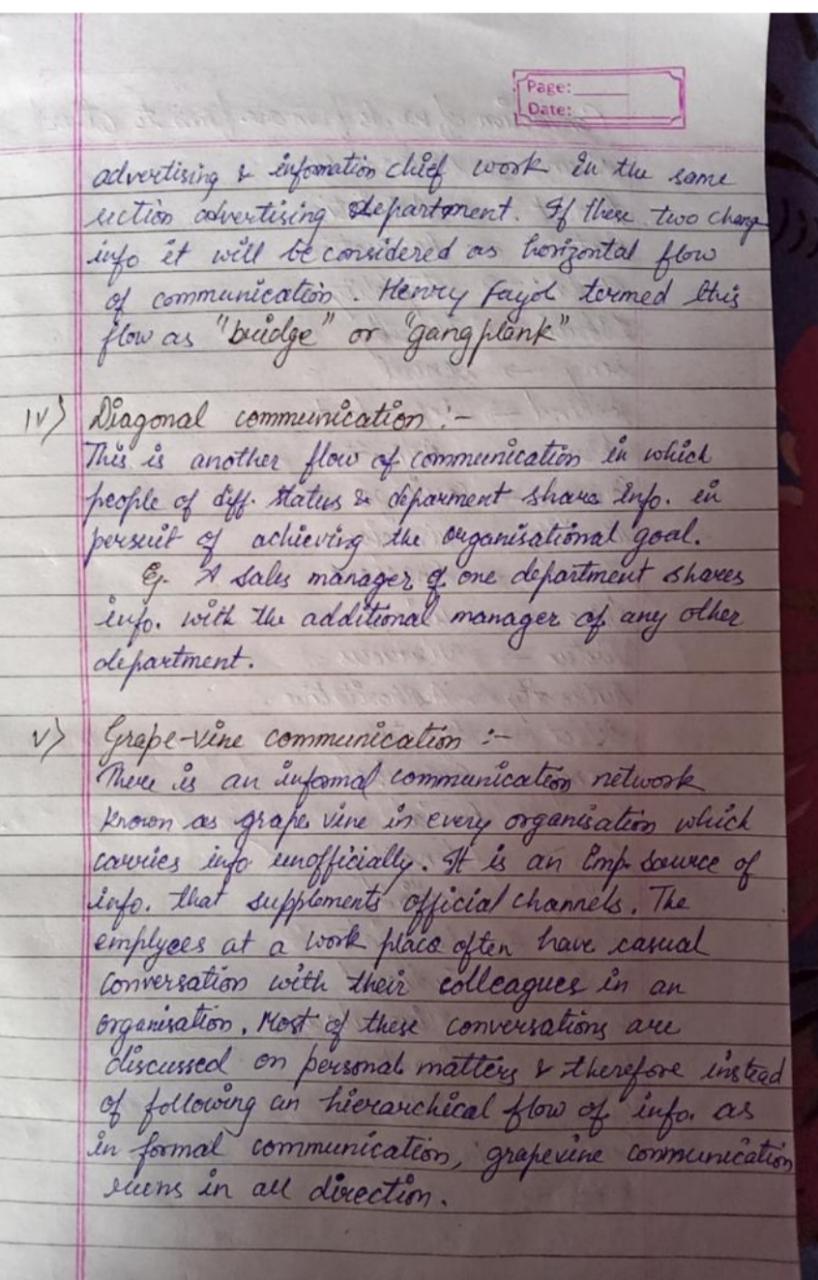 Page:
Date:
advertising & information chief work in the same
section advertising department. If these two change
info it will be considered as horizontal flow
of communication. Henry Fayol termed this
flow as "bridge" or "gangplank"
iv) Diagonal communication :-
This is another flow of communication in which
people of diff. status & deparment share info. in
persuit of achieving the organisational goal.
Eg. A sales manager of one department shares
info. with the additional manager of any other
department.
v) Grape-vine communication :-
There is an informal communication network
known as grape vine in every organisation which
carries info unofficially. It is an Imp. source of
info. that supplements official channels. The
emplyees at a work place often have casual
conversation with their colleagues in an
organisation. Most of these conversations are
discussed on personal matters & therefore instead
of following an hierarchical flow of info. as
in formal communication, grapevine communication
runs in all direction.